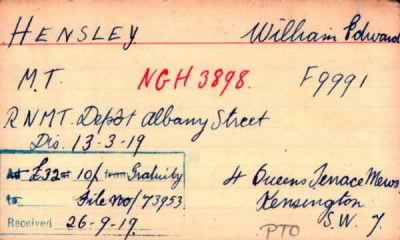 HENSLEY. William Edward
M.T. NGH 3898. F9991
R N M T. Depôt Albany Street
Dis. 13-3-19
£32 = 10/. Gratuity
to File No/73953
Received 26-9-19.
4 Queens Terrace Mews
Kensington
S.W. 7.
PTO